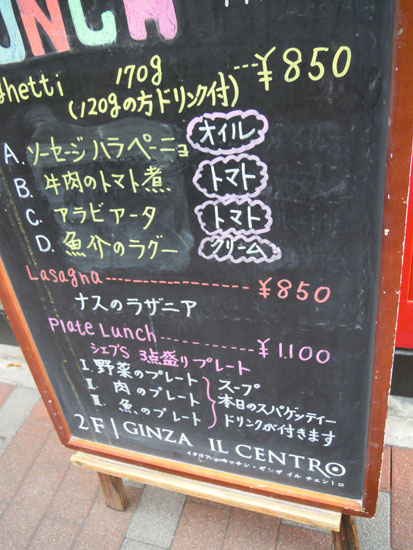 LUNCH
ghetti 170g ¥850
(120gの方ドリンク付)
A. ソーセージハラペーニョ オイル
B. 牛肉のトマト煮 トマト
C. アラビアータ トマト
D. 魚介のラグー クリーム
Lasagna ¥850
ナスのラザニア
Plate Lunch ¥1,100
シェフ'S 3点盛りプレート
I. 野菜のプレート スープ
II. 肉のプレート 本日のスパゲッティー
III. 魚のプレート ドリンクが付きます
2F | GINZA IL CENTRO
イタリアンキッチン・ギンザ イル チェントロ